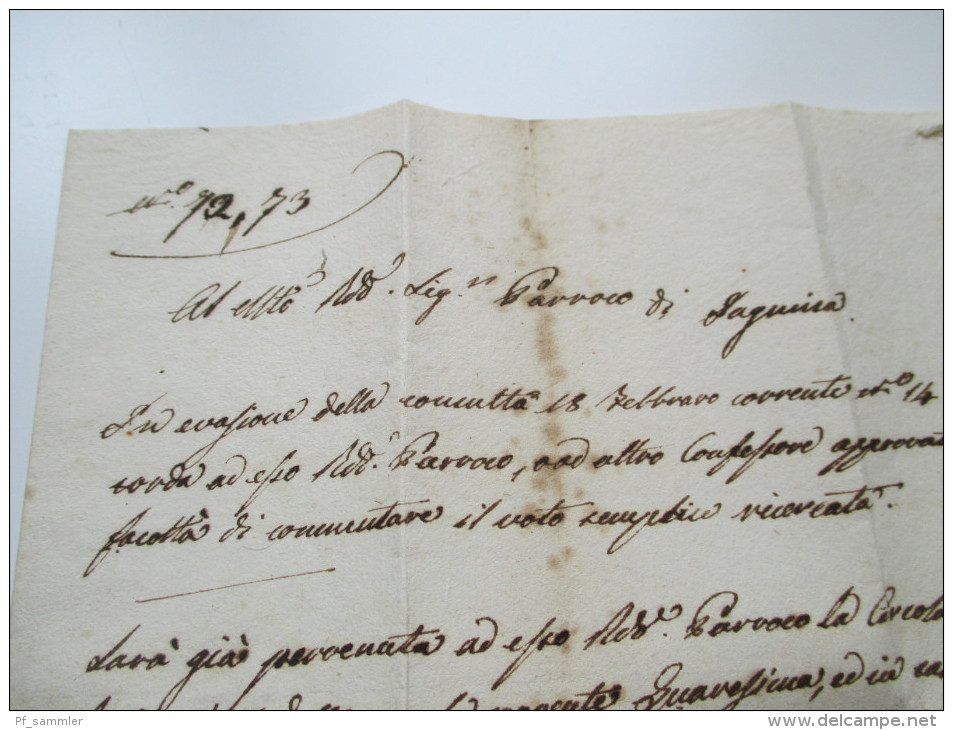 N.o 72, 73
Al Molto Rdo. Sig.r Parroco di
In evasione della consulta 18 Febbraro corrente N.o 14
corda ad esso Rdo. Parroco, o ad altro Confessore approvat
facoltà di commutare il voto semplice ricercata.
Sarà già pervenuta ad esso Rdo. Parroco la Circola
Quaresima, ed in
Pf_sammler
www.delcampe.net